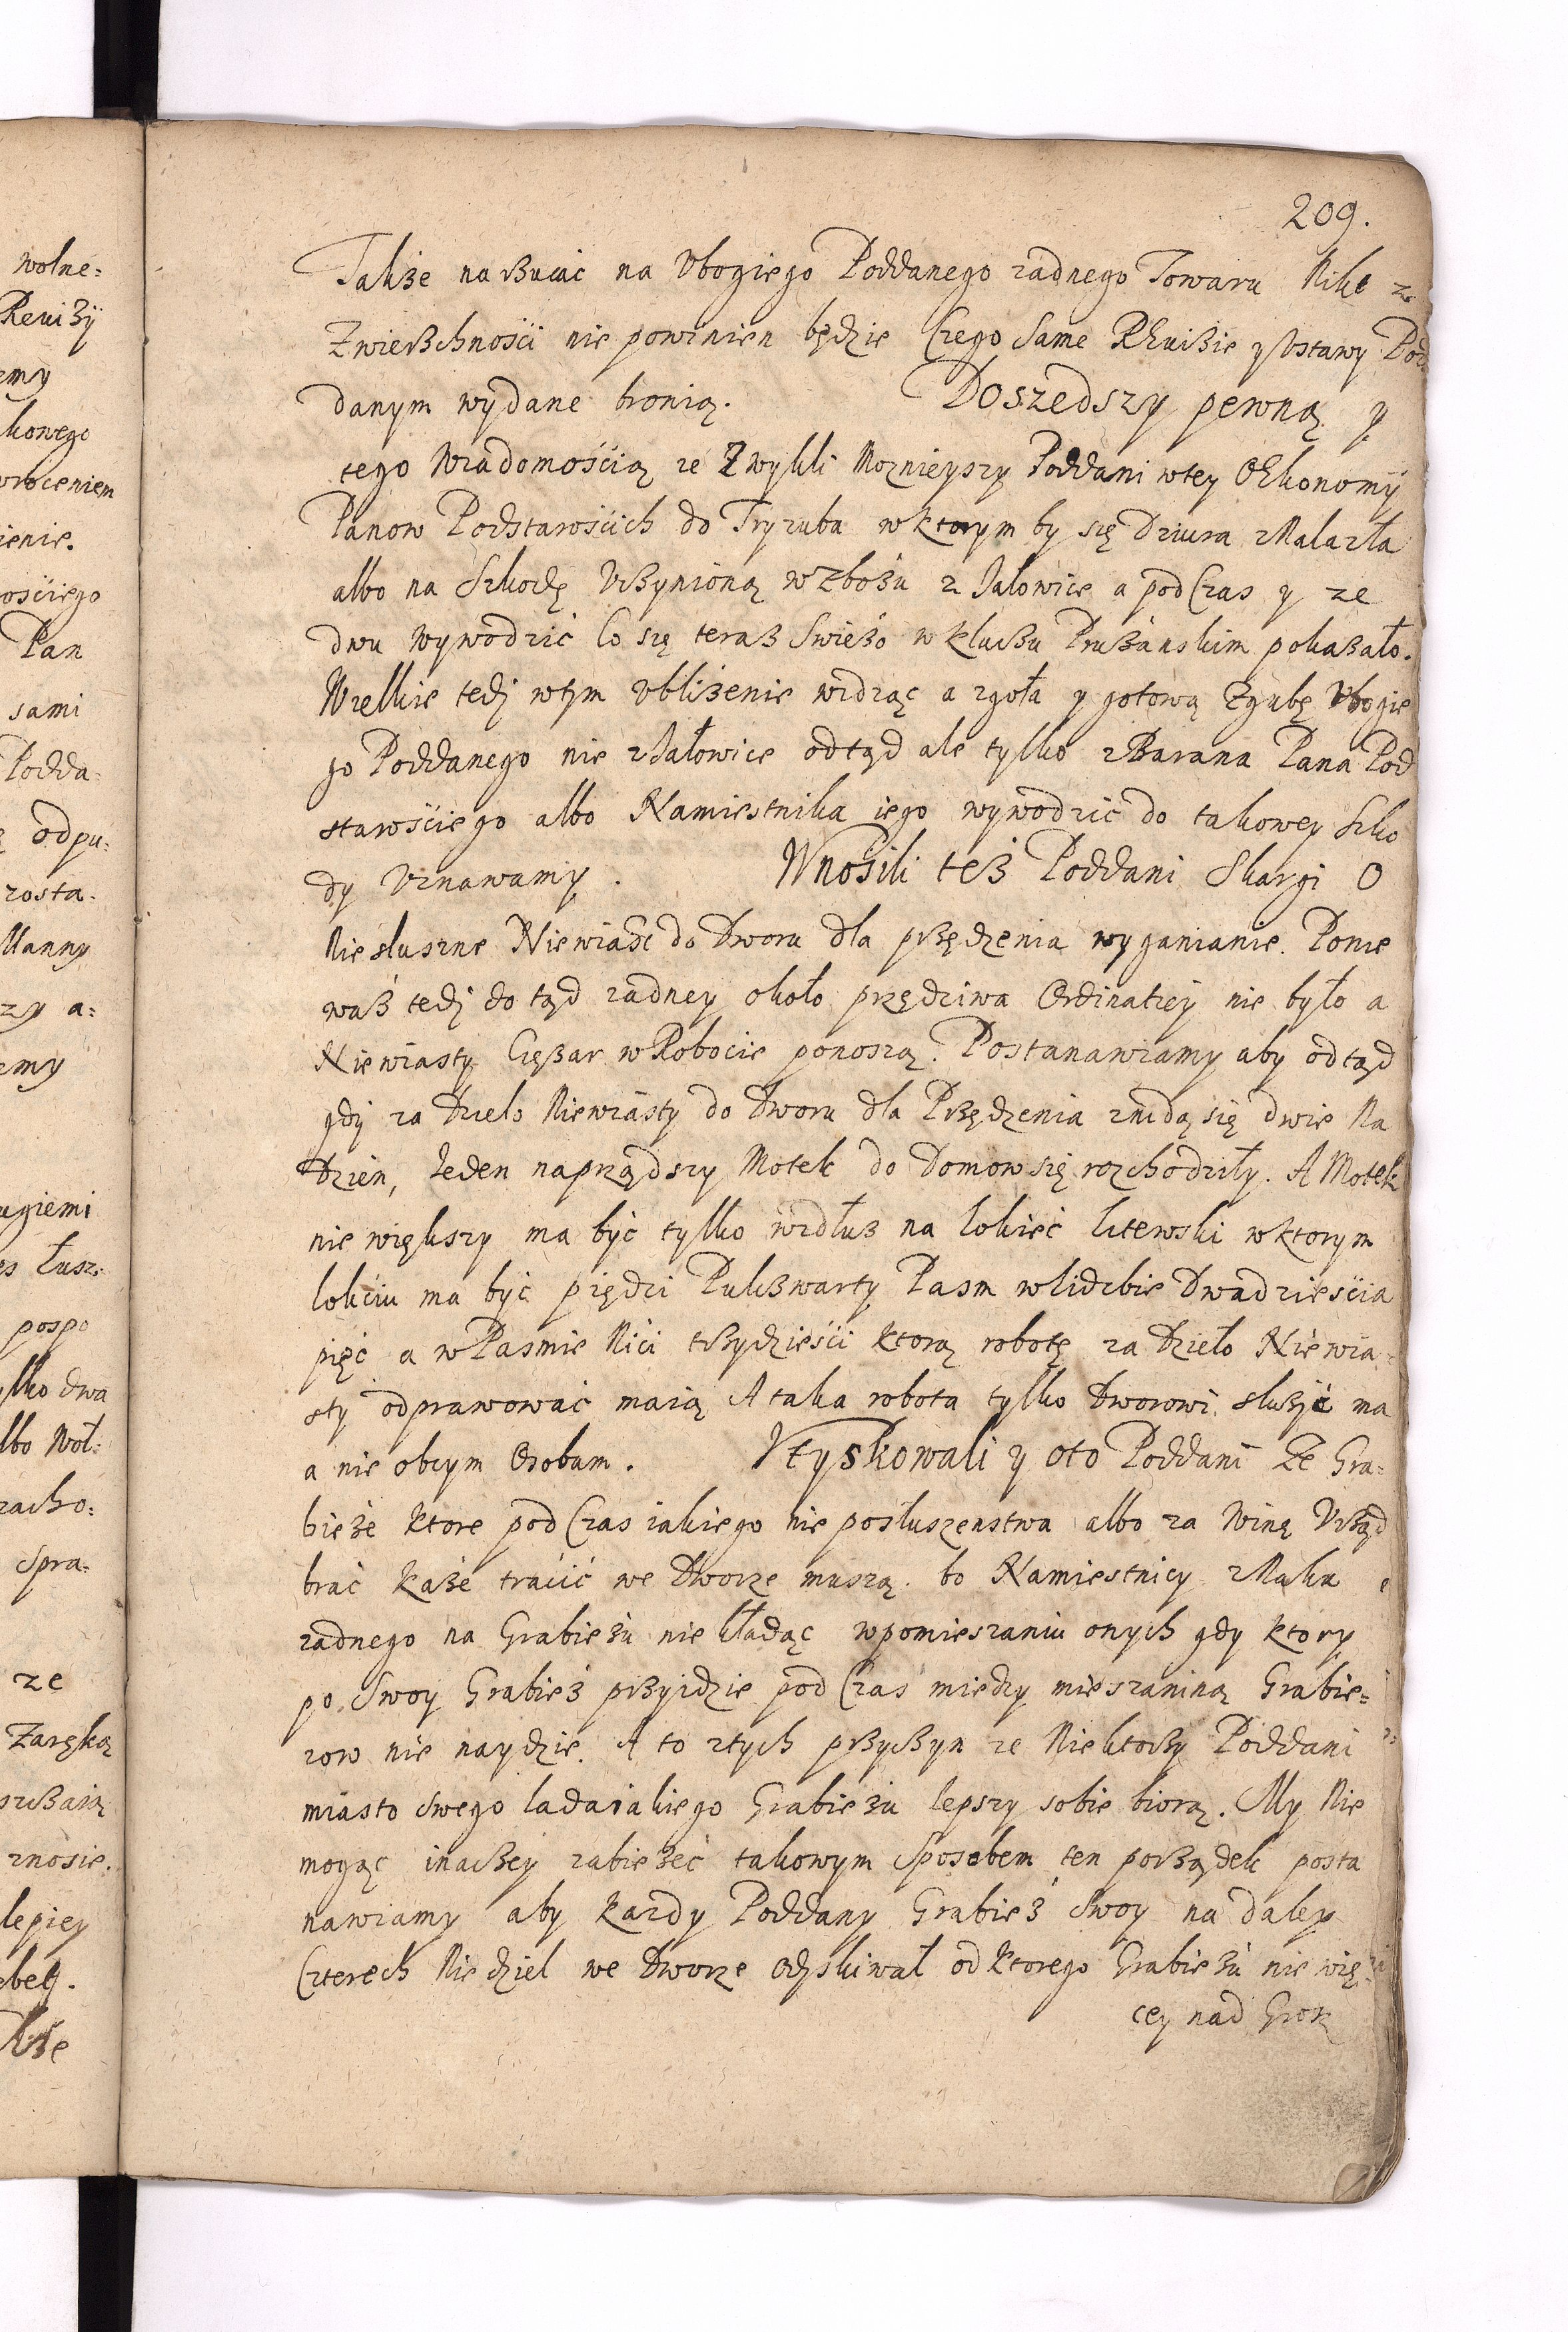 wolne=
Reuiży
emy
kowego
wroceniem
ienie.
ościego
Pan
sami
Podda=
odpu=
rosta=
Manny
zy a=
emy
ugiemi
es łusz=
pospo
ylko dwa
lbo Woł=
zacho=
spra=
ze
Zaręką
znosie.
lepiey
209.
Także narzucać na Vbogiego Poddanego zadnego Towaru Nikt z
Zwierzchnośći nie powinien będzie Czego same REuizie y Vstawy Pod
danym wydane bronią. Doszedszy pewną y
tego Wiadomośćią ze Zwykli Moznieyszy Poddani wtey OEkonomij
Panow Podstarośćich do Tryzuba w ktorym by się Dziura znalazła
albo na Szkodę Vczynioną w zbożu z Jalowice a pod Czas y ze
dwu wywodzić Co się teraz Swieżo w kluczu Prużanskim pokazało.
Wielkie tedj wtym Vbliżenie widząc a zgoła y gotową Zgubę Vbogie
go Poddanego nie zJałowice odtąd ale tylko zBarana Pana Pod
starośćiego albo Namiestnika iego wywodzić do takowey Szko
dy Vznawamy. Wnosili też Poddani Skargi O
Niesłuszne Niewiast do Dworu dla przędzenia wyganianie. Ponie
waż tedj do tąd zadney około przędziwa Ordinatiey nie było a
Niewiasty Ciężar w Robocie ponoszą. Postanawiamy aby odtąd
gdj za Dzieło Niewiasty do Dworu dla Przędzenia znidą się dwie Na
Dzien, Jeden naprządszy Motek do Domow się rozchodziły. A Motek
nie większy ma być tylko wzdłuz na łokieć litewski wktorym
lokćiu ma być piędzi Pulczwarty Pasm wliczbie Dwadzieśćia
pięć a w Pasmie Nići trzydzieśći ktorą robotę za Dzieło Niewia=
sty odprawować maią A taka robota tylko Dworowi służjć ma
a nie obcym Osobam. Vtyskowali y oto Poddani Ze Gra=
bieże ktore pod Czas iakiego nieposłuszenstwa albo za Winą Vrząd
brać każe traćić we Dworze muszą. bo Namiestnicy zNaku
zadnego na Grabieżu nie kładąc wpomieszaniu onych gdy ktory
po swoy Grabież przyidzie pod Czas miedzy mieszaniną Grabie=
zow nie naydzie. A to ztych przyczyn ze Niektorzy Poddani
miasto swego ladaiakiego Grabieżu lepszy sobie biorą. My Nie
mogąc inaczey zabieżeć takowym Sposobem ten porządek posta
nawiamy aby kazdy Poddany Grabież Swoy na daley
Czterech Niedziel we Dworze odyskiwał od ktorego Grabieżu nie wię=
cey nad Grosz